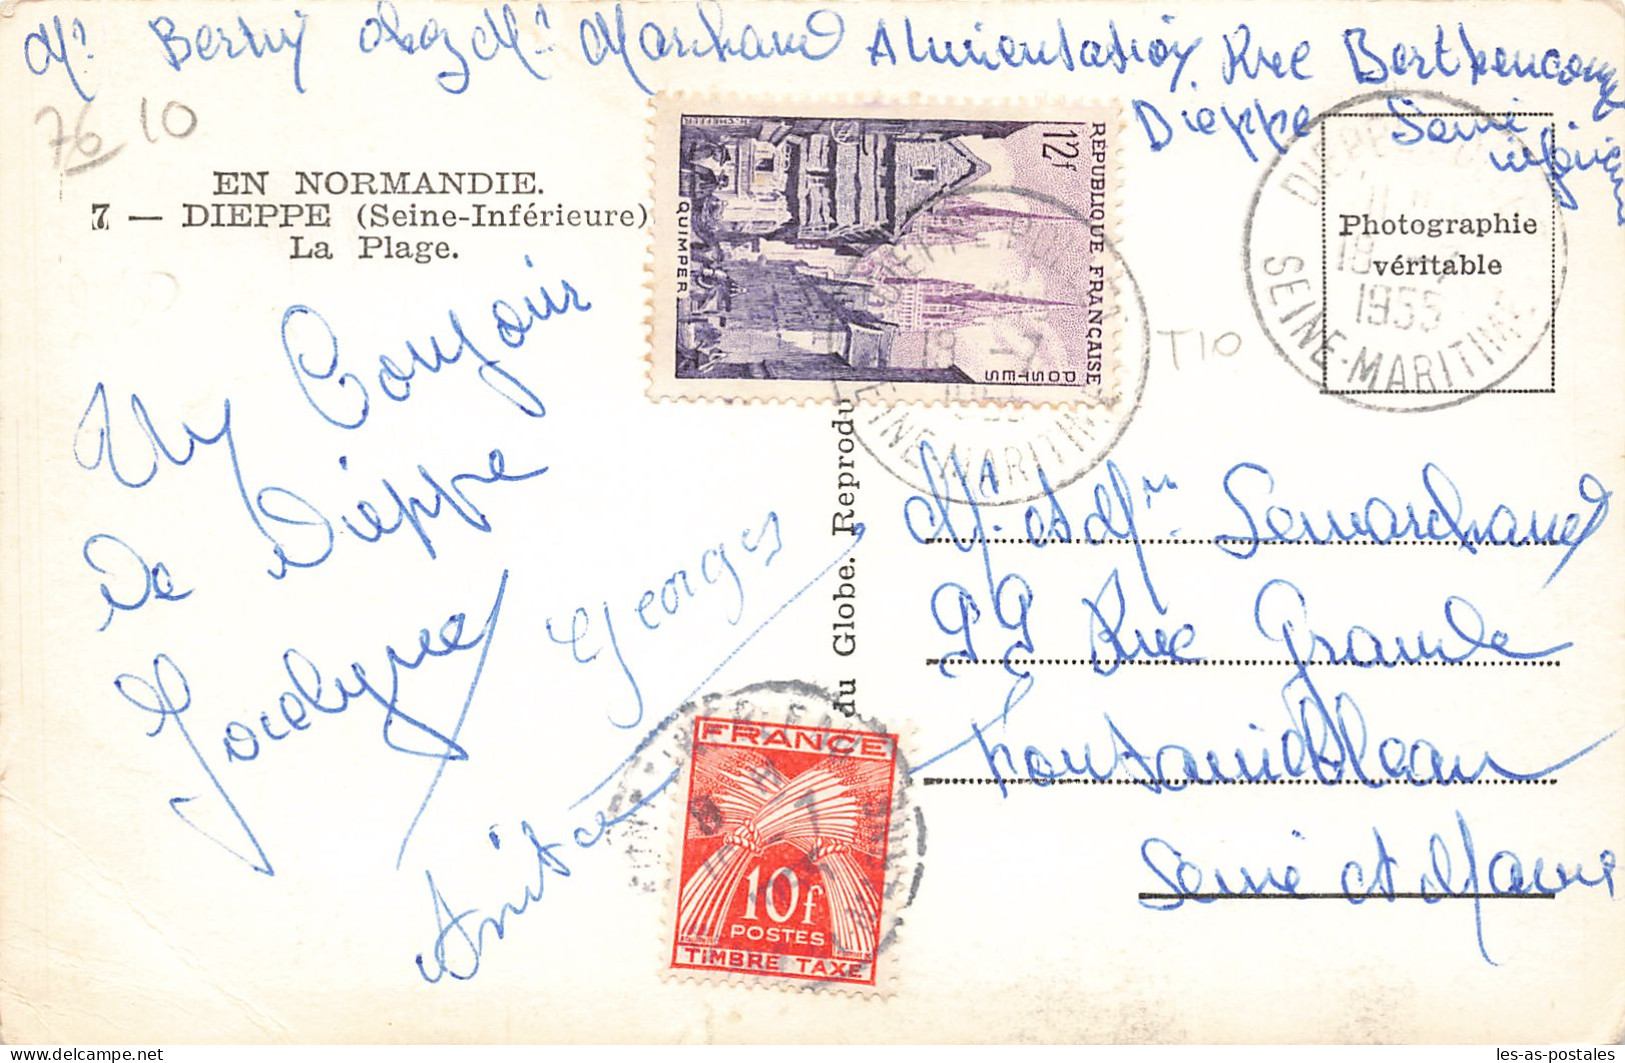 Mr Berthy chez Mr Marchand Alimentation Rue Berthencourt
Dieppe Seine
inférieure
76 10
EN NORMANDIE.
7 — DIEPPE (Seine-Inférieure)
La Plage.
RÉPUBLIQUE FRANÇAISE
12f
POSTES
QUIMPER
DIEPPE
18 -7
1955
SEINE-MARITIME
Photographie
véritable
T10
18 -7
SEINE-MARITIME
Un Bonjour
De Dieppe
Jocelyne
Georges
Anita
du Globe. Reprodu
Mr et Mme Lemarchand
99 Rue Grande
Fontainebleau
Seine et Marne
FRANCE
10f
POSTES
TIMBRE TAXE
les-as-postales